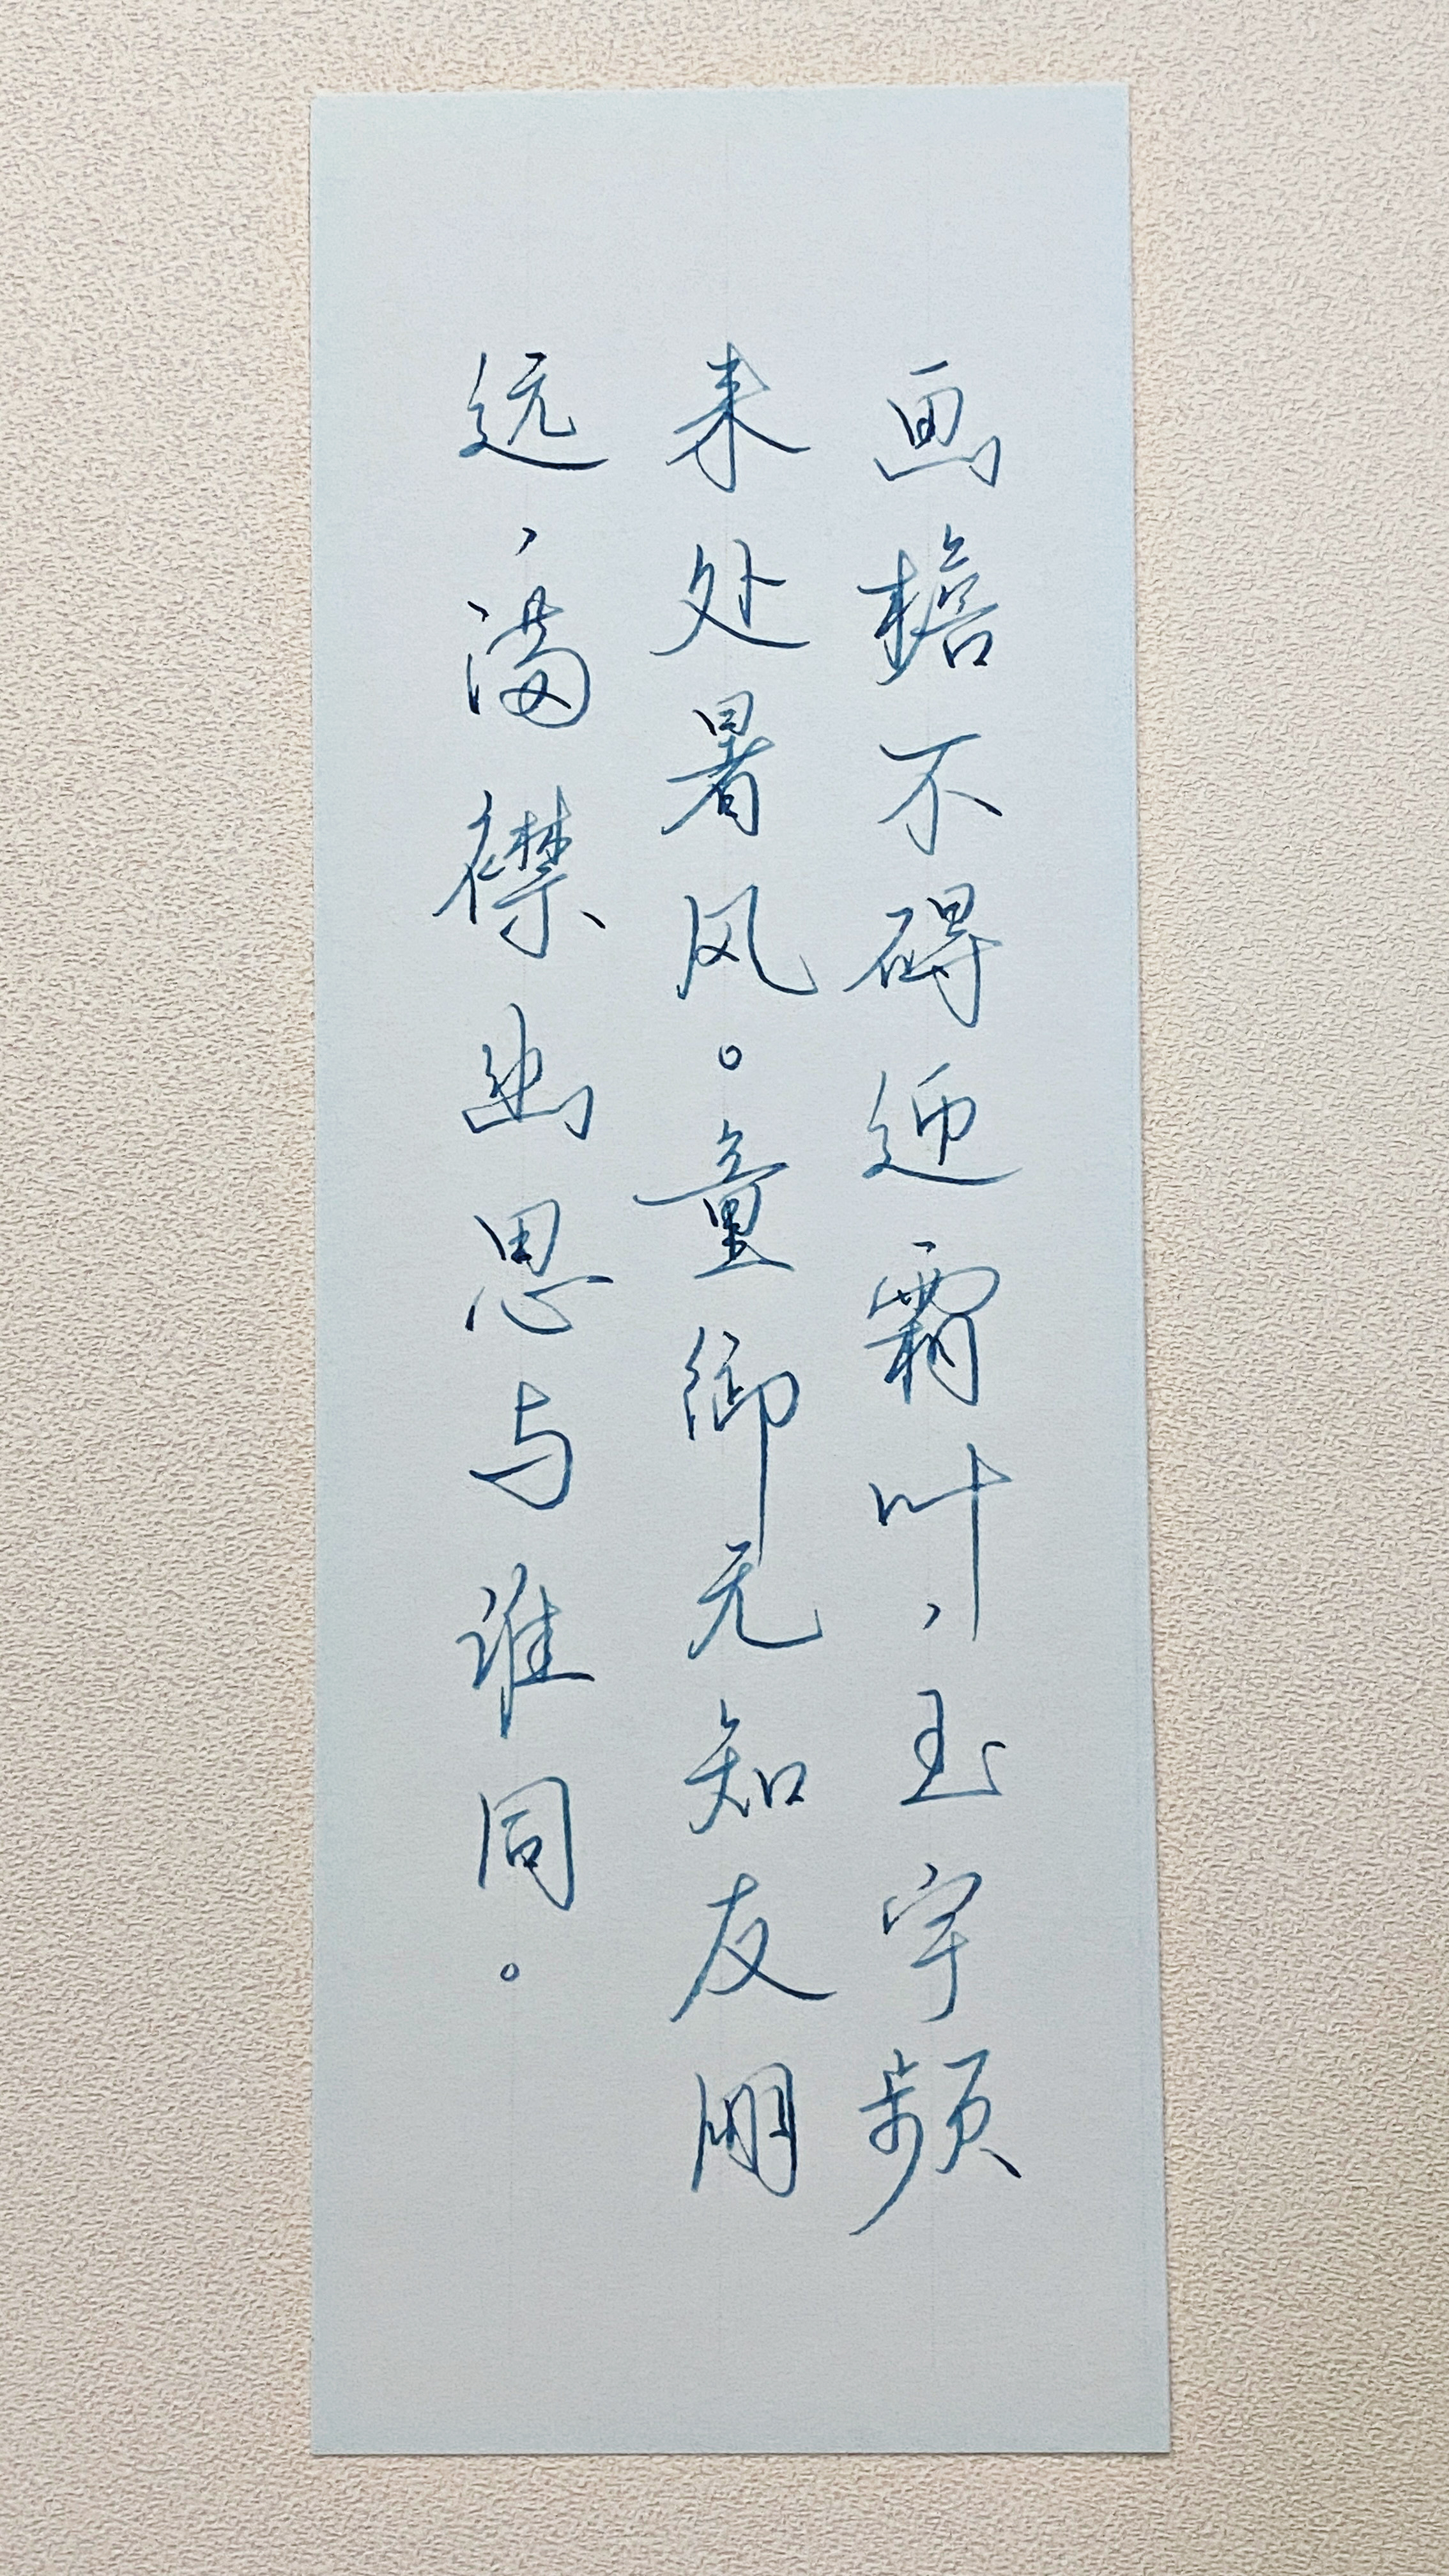 画檐不碍迎霜叶，玉宇频
来处暑风。童御无知友朋
远，满襟幽思与谁同。